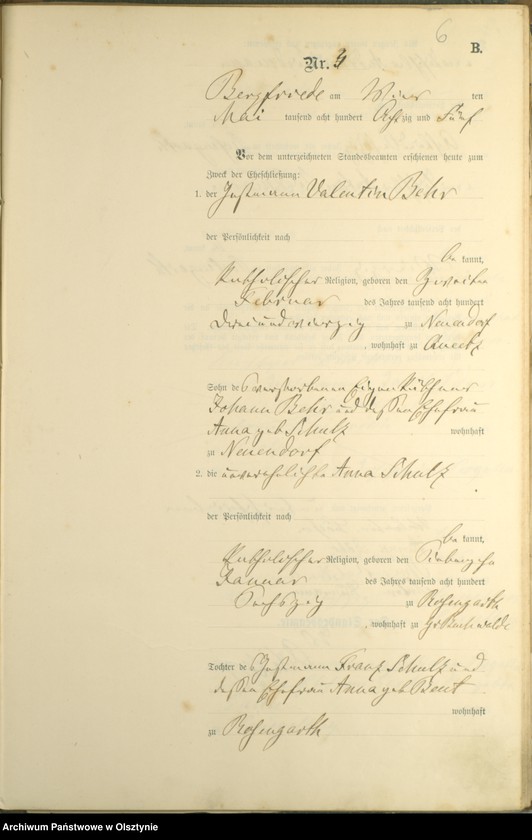 6
B.
Nr. 4
Bergfriede am ten
Mai tausend acht hundert Achtzig und Fünf
Vor dem unterzeichneten Standesbeamten erschienen heute zum
Zweck der Eheschließung:
1. der Instmann Valentin Behr
der Persönlichkeit nach
be kannt,
Katholischer Religion, geboren den Zweiten
Februar des Jahres tausend acht hundert
Dreiundvierzig zu Neuendorf
, wohnhaft zu Queetz
Sohn des verstorbenen Eigenkäthners
Johann Behr und dessen Ehefrau
Anna geb Schulz wohnhaft
zu Neuendorf
2. die unverehelichte Anna Schulz
der Persönlichkeit nach
be kannt,
Katholischer Religion, geboren den
Januar des Jahres tausend acht hundert
Sechszig zu Rosengarth
, wohnhaft zu Gr Buchwalde
Tochter des Instmann Franz Schulz und
dessen Ehefrau Anna geb
wohnhaft
zu Rosengarth
Archiwum Państwowe w Olsztynie